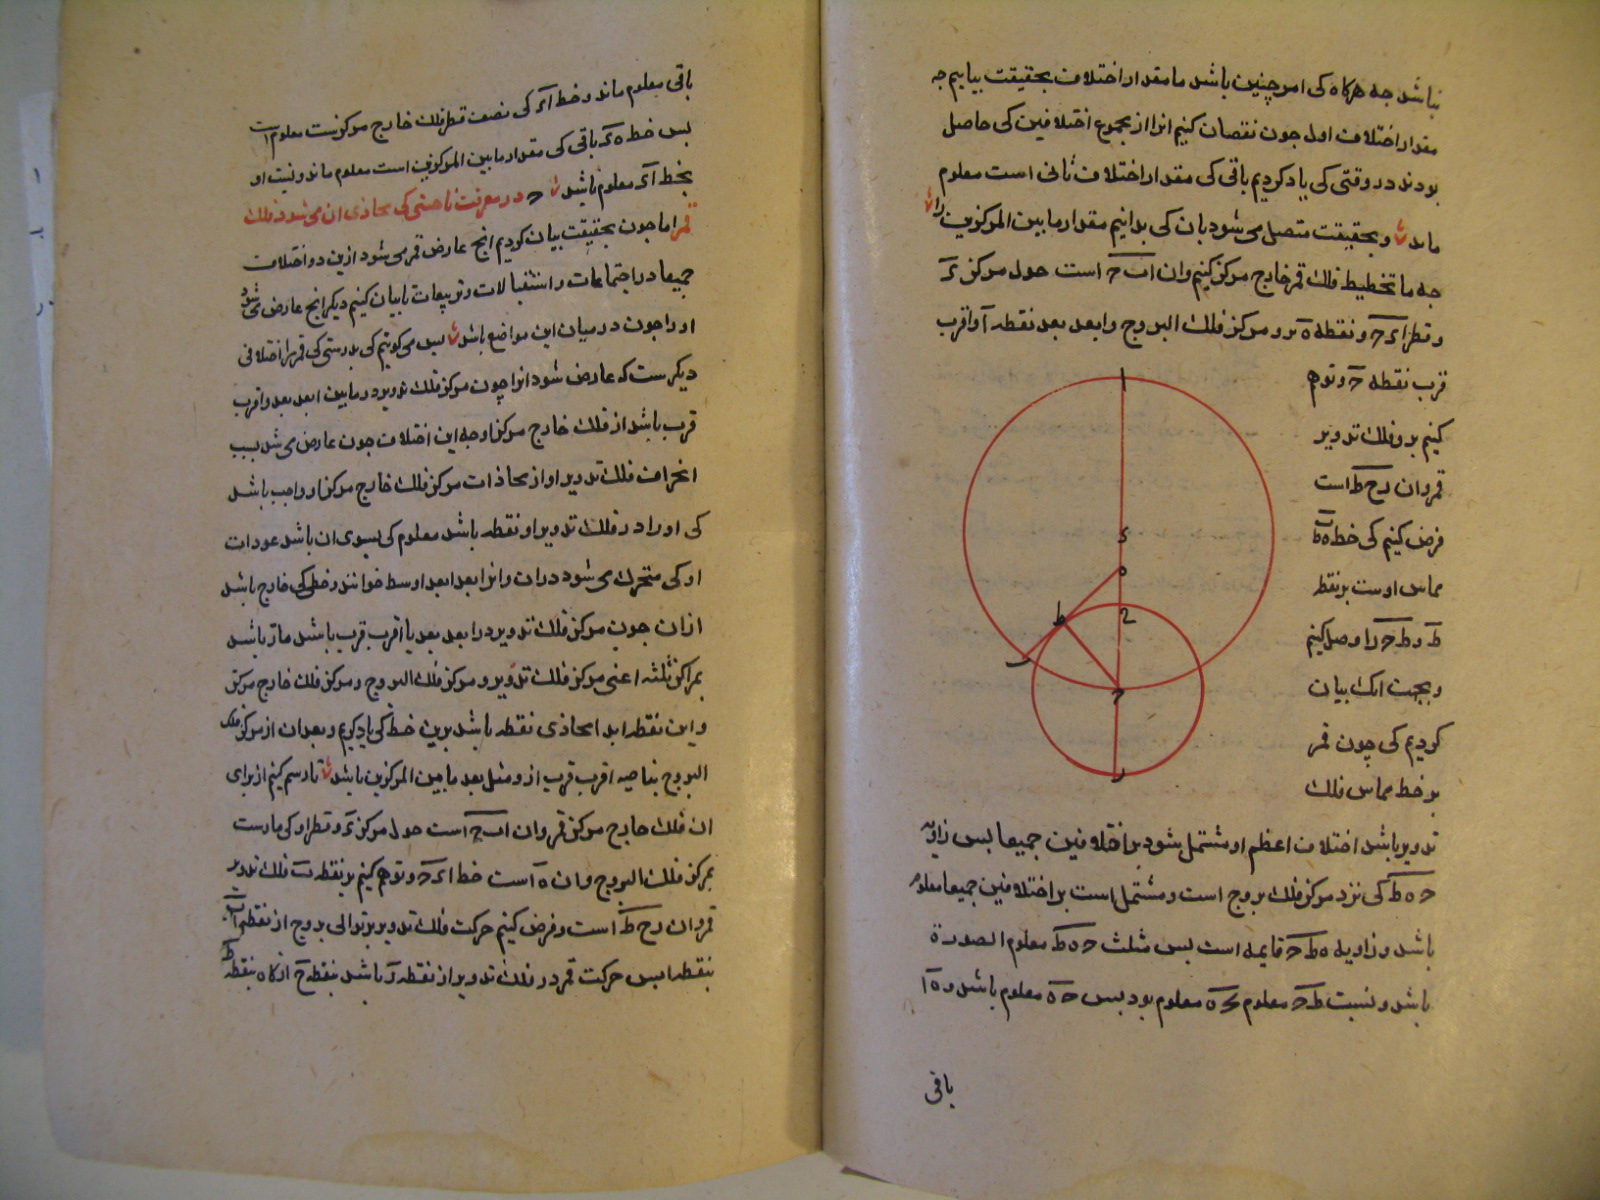 نباشد جه هرکاه کی امر چنین باشد ما مقدار اختلاف بحقیقت بیابیم جه
مقدار اختلاف اول جون نقصان کنیم انرا از مجموع اختلافین کی حاصل
بودند در وقتی کی یاد کردیم باقی کی مقدار اختلاف ثانی است معلوم
ماند و بحقیقت متصل می شود بان کی بدانیم مقدار ما بین المرکزین را
جه ما تخطیط فلك قمر خارج مرکز کنیم وان اب ج است حول مرکز د
و قطر ا د ج و نقطه ه برو مرکز فلك البروج و ابعد بعد نقطه آ و اقرب
قرب نقطه ج و توهم
کنیم برو فلك تدویر
قمر وان رح ط است
فرض کنیم کی خط ه ط ب
مماس اوست بر نقطه
ط و ط ج را وصل کنیم
و بجهت انك بیان
کردیم کی چون قمر
بر خط مماس فلك
ا
د
ه
ط
ح
ج
ر
تدویر باشد اختلاف اعظم او مشتمل شود بر اختلافین جمیعا بس زاویه
ج ه ط کی نزد مرکز فلك بروج است و مشتمل است بر اختلافین جمیعا معلوم
باشد و زاویه ه ط ج قایمه است بس مثلث ج ه ط معلوم الصورة
باشد و نسبت ط ج معلوم بج ه معلوم بود بس ج ه معلوم باشد و ه آ
باقی
باقی معلوم ماند و خط آ د کی نصف قطر فلك خارج مرکزست معلوم است
بس خط ه د باقی کی مقدار ما بین المرکزین است معلوم ماند و نسبت او
بخط آ د معلوم باشد ج در معرفت ناحیتی کی محاذی ان می شود فلك
قمر اما جون بحقیقت بیان کردیم انج عارض قمر می شود ازین دو اختلاف
جمیعا در اجتماعات و استقبالات و تربیعات تا بیان کنیم دیکر انج عارض می شود
او را جون در میان این مواضع باشد بس می کوییم کی بدرستی کی قمر را اختلافی
دیکرست که عارض شود انرا چون مرکز فلك تدویر در ما بین ابعد بعد و اقرب
قرب باشد از فلك خارج مرکز او جه این اختلاف جون عارض می شد بسبب
انحراف فلك تدویر او از محاذات مرکز فلك خارج مرکز او واجب باشد
کی او را در فلك تدویر او نقطه باشد معلوم کی بسوی ان باشد عودات
او کی متحرك می شود در ان و انرا بعد ابعد اوسط خوانند و خطی کی خارج باشد
از ان جون مرکز فلك تدویر در ابعد بعد یا اقرب قرب باشد مار باشد
بمراکز ثلثه اعنی مرکز فلك تدویر و مرکز فلك البروج و مرکز فلك خارج مرکز
و این نقطه ابدا محاذی نقطه باشد برین خط کی یاد کردیم و بعد ان از مرکز فلك
البروج بناحیه اقرب قرب از و مثل بعد ما بین المرکزین باشد تا رسم کنیم از برای
ان فلك خارج مرکز قمر وان اب ج است حول مرکز د و قطر او کی مارست
بمرکز فلك البروج وان ه است خط ا د ج و توهم کنیم بر نقطه ب فلك تدویر
قمر وان رح ط است و فرض کنیم حرکت فلك تدویر بر توالی بروج از نقطه ب
بنقطه ا بس حرکت قمر در فلك تدویر از نقطه ر باشد بنقطه ح انکاه بنقطه ط